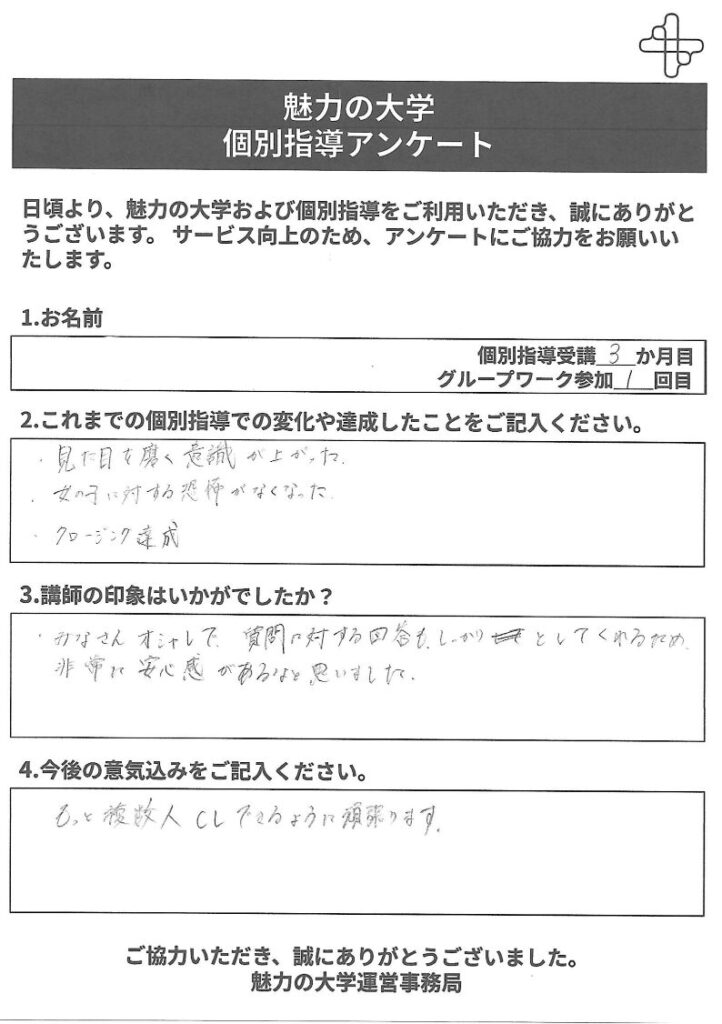 魅力の大学
個別指導アンケート
日頃より、魅力の大学および個別指導をご利用いただき、誠にありがと
うございます。 サービス向上のため、アンケートにご協力をお願いい
たします。
1.お名前
個別指導受講 3 か月目
グループワーク参加 1 回目
2.これまでの個別指導での変化や達成したことをご記入ください。
・見た目を磨く意識が上がった.
・女の子に対する恐怖がなくなった.
・クロージング達成
3.講師の印象はいかがでしたか？
・みなさんオシャレで、質問に対する回答も、しっかり としてくれるため、
非常に安心感があるなと思いました.
4.今後の意気込みをご記入ください。
もっと複数人CLできるように頑張ります.
ご協力いただき、誠にありがとうございました。
魅力の大学運営事務局